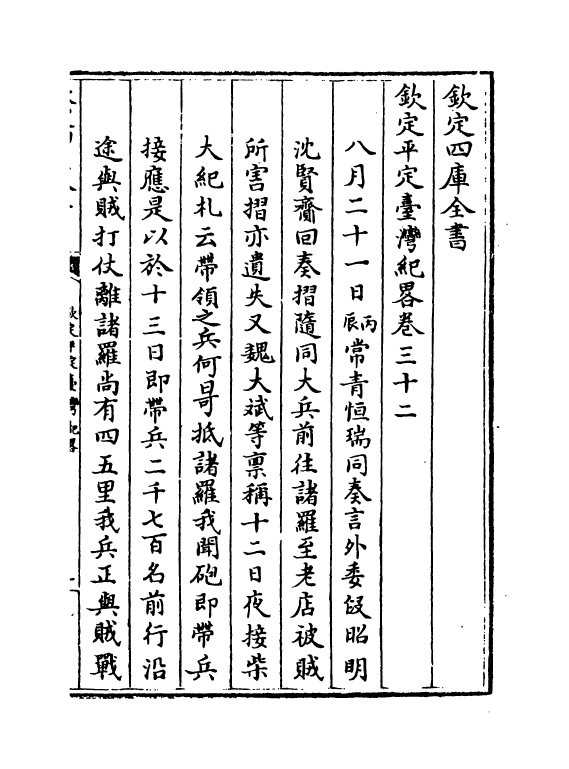 欽定四庫全書
欽定平定臺灣紀畧卷三十二
八月二十一日丙辰常青恒瑞同奏言外委段昭明
沈賢齎回奏摺隨同大兵前往諸羅至老店被賊
所害摺亦遺失又魏大斌等禀稱十二日夜接柴
大紀札云帶領之兵何日可抵諸羅我聞砲即帶兵
接應是以於十三日即帶兵二千七百名前行沿
途與賊打仗離諸羅尚有四五里我兵正與賊戰
欽定平定臺灣紀畧
一